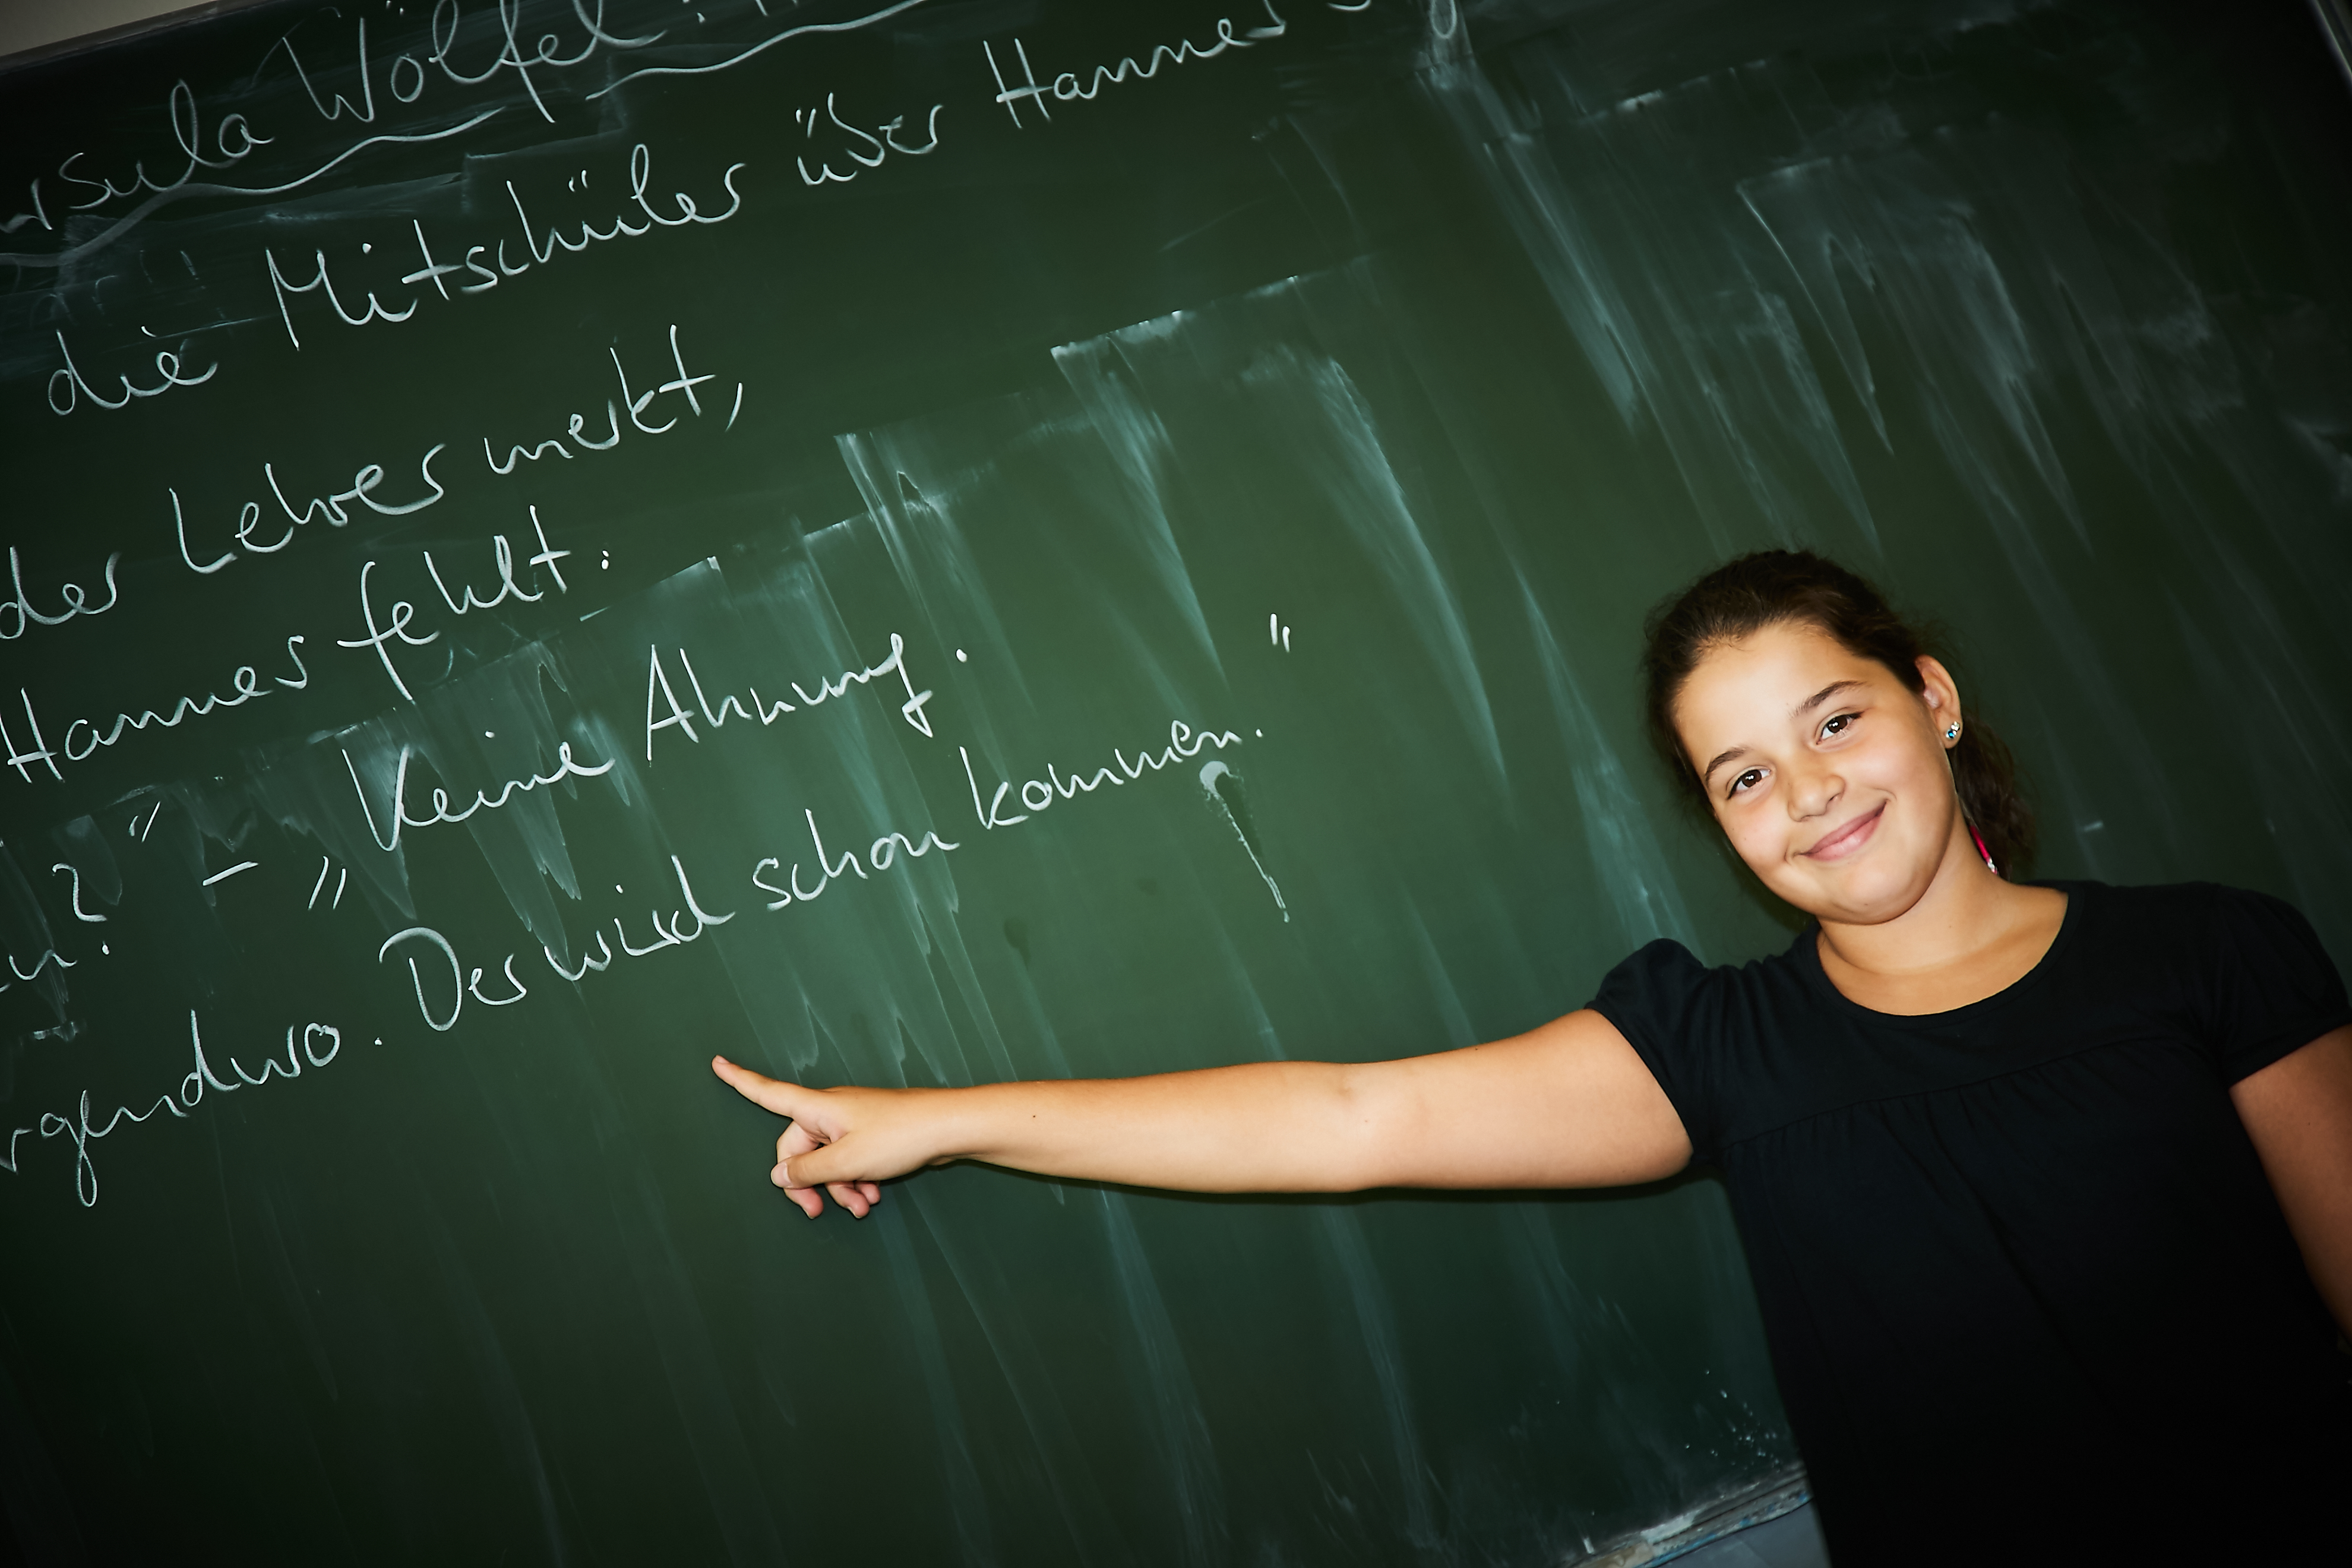 Ursula Wölfel:
die Mitschüler über Hannes
der Lehrer merkt,
Hannes fehlt:
?" - „Keine Ahnung.
irgendwo. Der wird schon kommen."